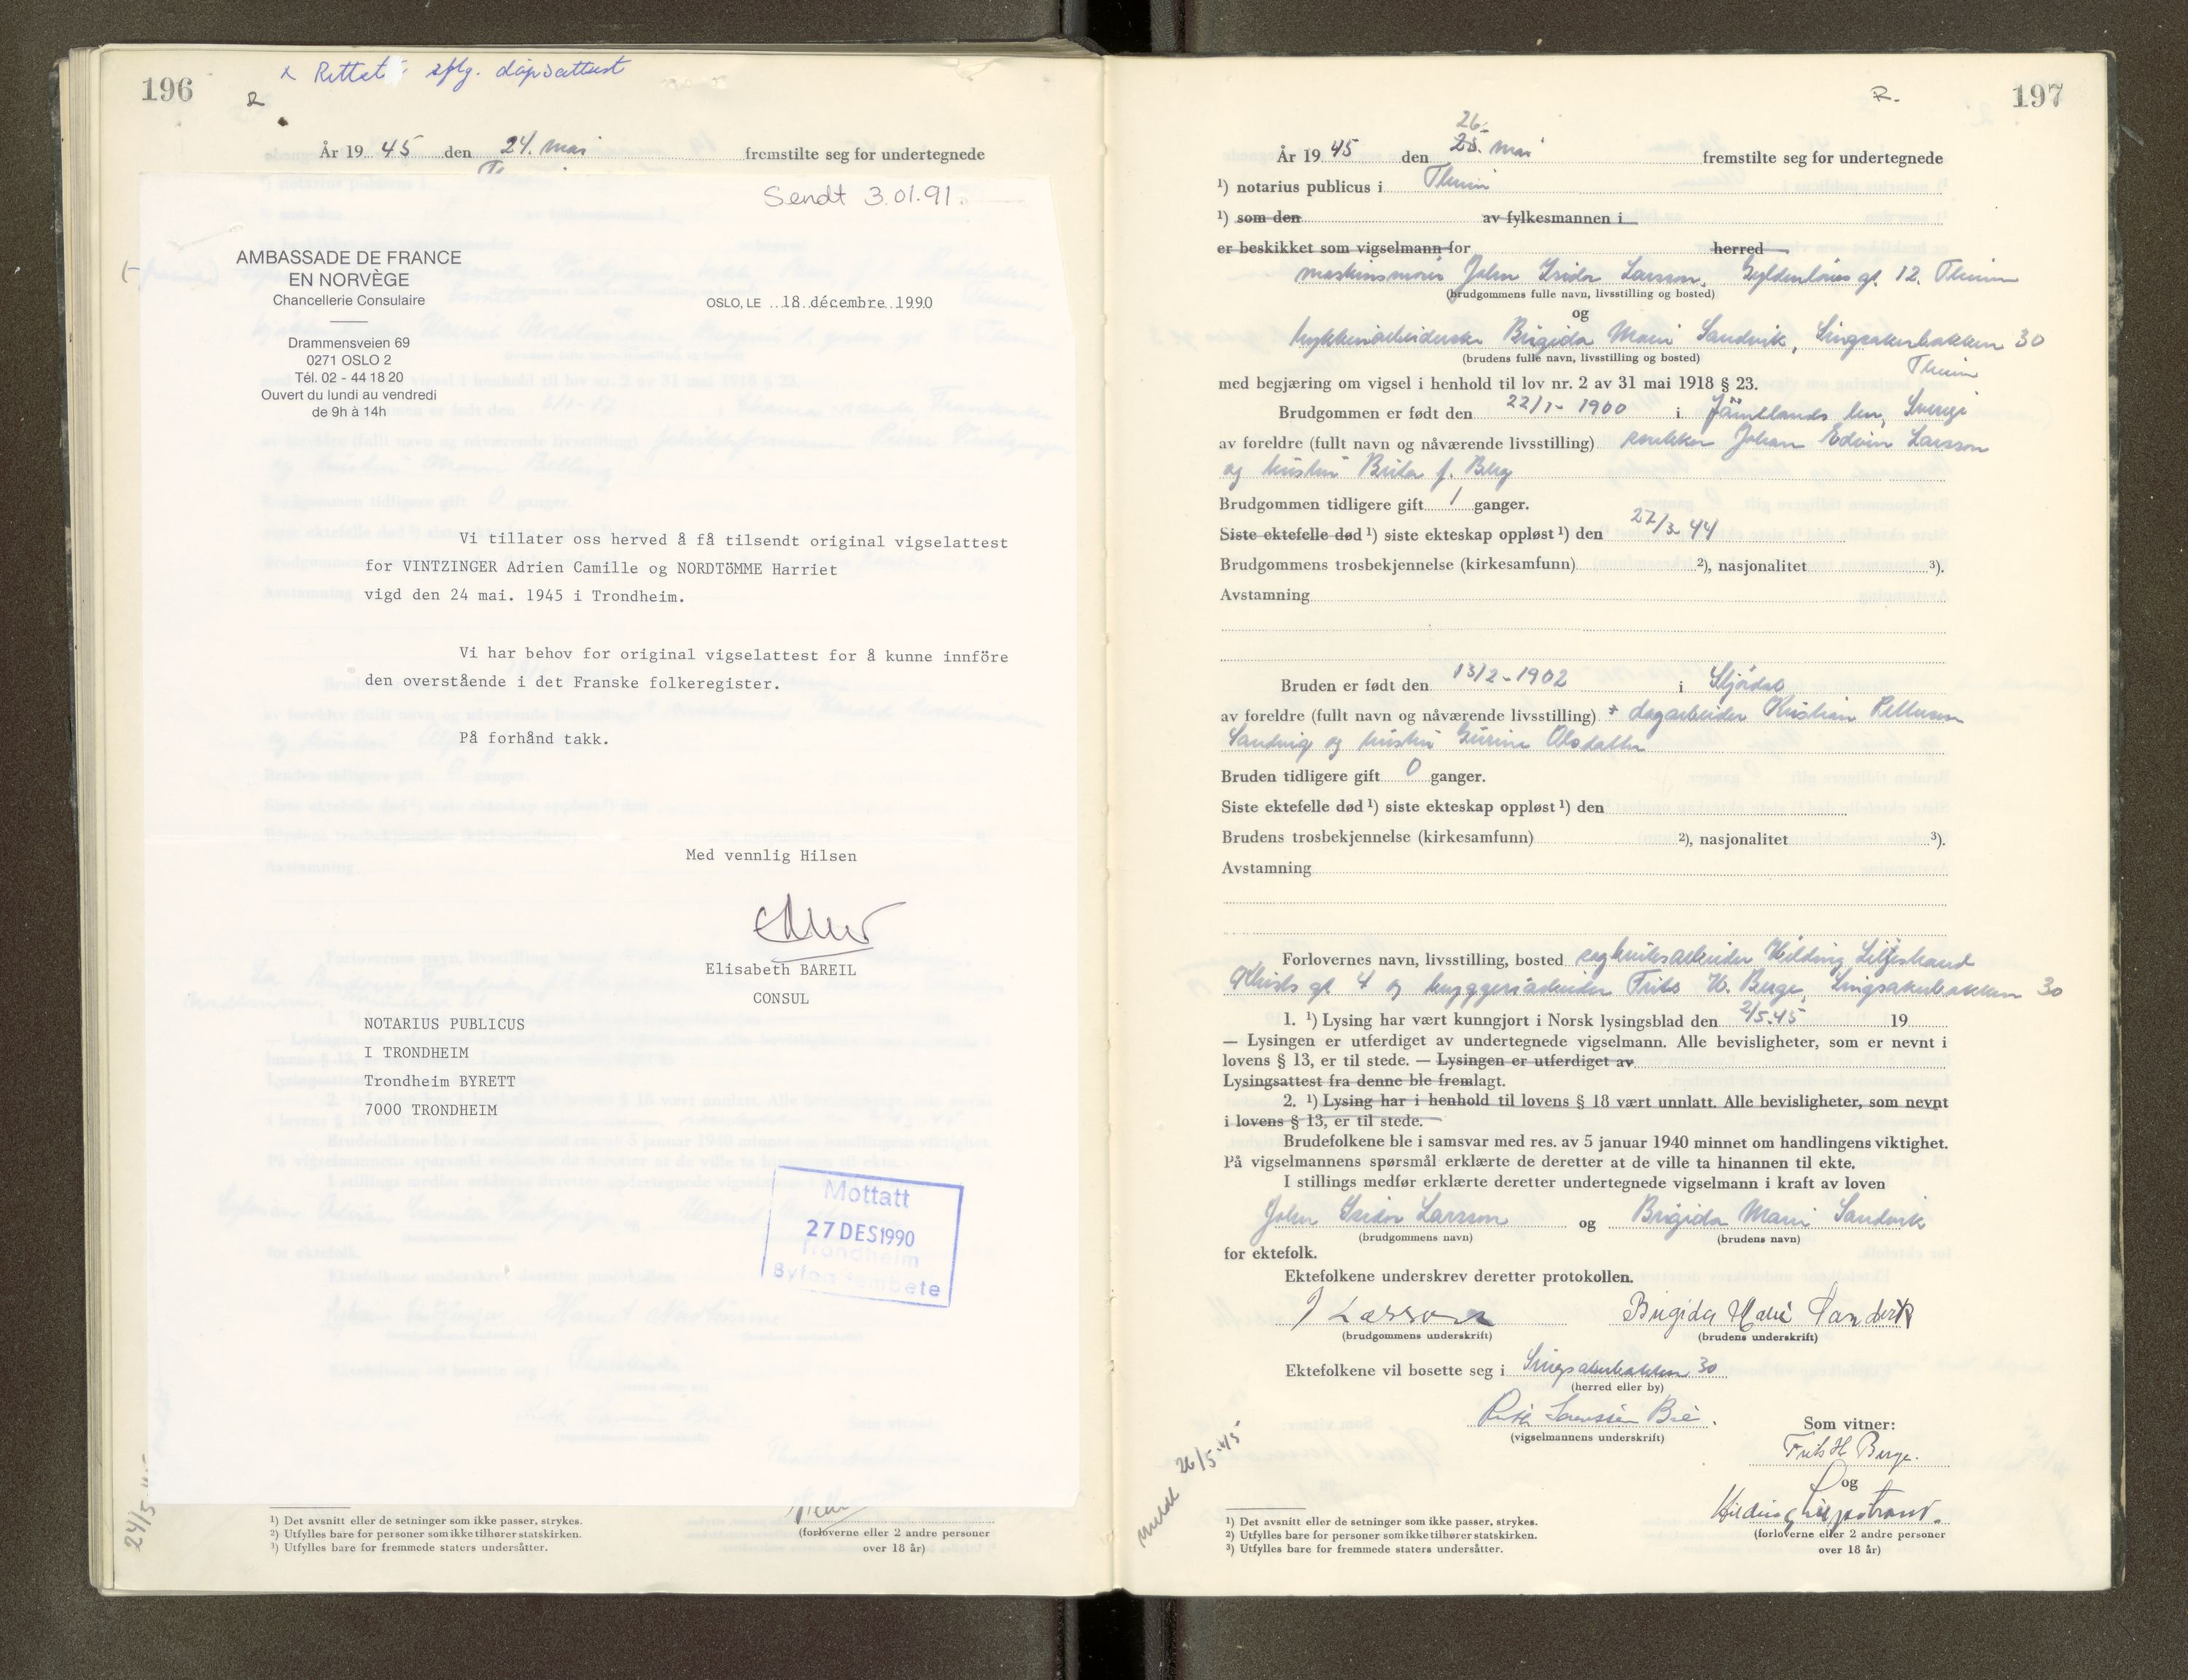 196
x Rettet iflg. dåpsattest
År 19 45 den 24. mai fremstilte seg for undertegnede
Sendt 3.01.91.
AMBASSADE DE FRANCE
EN NORVÈGE
Chancellerie Consulaire
OSLO, LE 18 décembre 1990
Drammensveien 69
0271 OSLO 2
Tél. 02 - 44 18 20
Ouvert du lundi au vendredi
de 9h à 14h
Vi tillater oss herved å få tilsendt original vigselattest
for VINTZINGER Adrien Camille og NORDTöMME Harriet
vigd den 24 mai. 1945 i Trondheim.
Vi har behov for original vigselattest for å kunne innföre
den overstående i det Franske folkeregister.
På forhånd takk.
Med vennlig Hilsen
Elisabeth BAREIL
CONSUL
NOTARIUS PUBLICUS
I TRONDHEIM
Trondheim BYRETT
7000 TRONDHEIM
Mottatt
27 DES 1990
Trondheim
24/5
¹) Det avsnitt eller de setninger som ikke passer, strykes.
²) Utfylles bare for personer som ikke tilhører statskirken.
³) Utfylles bare for fremmede staters undersåtter.
(forloverne eller 2 andre personer
over 18 år)
R.
197
26.
År 19 45 den 25. mai fremstilte seg for undertegnede
¹) notarius publicus i Theim
¹) som den av fylkesmannen i
er beskikket som vigselmann for herred
John Isidor Larsson, Gyldenløves gt. 12. Theim
(brudgommens fulle navn, livsstilling og bosted)
og
Brigida Marie Sandvik, Singsakerbakken 30
(brudens fulle navn, livsstilling og bosted)
Theim
med begjæring om vigsel i henhold til lov nr. 2 av 31 mai 1918 § 23.
Brudgommen er født den 22/1-1900 i Jämtlands len, Sverige
av foreldre (fullt navn og nåværende livsstilling) Johan Edvin Larsson
og hustru Brita f. Berg
Brudgommen tidligere gift 1 ganger.
Siste ektefelle død ¹) siste ekteskap oppløst ¹) den 27/3-44
Brudgommens trosbekjennelse (kirkesamfunn) ²), nasjonalitet ³).
Avstamning
Bruden er født den 13/2-1902 i Stjørdal
av foreldre (fullt navn og nåværende livsstilling) + dagarbeider Kristian Pettersen
Sandvig og hustru Gurine Olsdatter
Bruden tidligere gift 0 ganger.
Siste ektefelle død ¹) siste ekteskap oppløst ¹) den
Brudens trosbekjennelse (kirkesamfunn) ²), nasjonalitet ³).
Avstamning
Forlovernes navn, livsstilling, bosted sagbruksarbeider Hilding Liljestrand
gt 4 og bryggeriarbeider Frits H. Berge, Singsakerbakken 30
1. ¹) Lysing har vært kunngjort i Norsk lysingsblad den 2/5.45 19
— Lysingen er utferdiget av undertegnede vigselmann. Alle bevisligheter, som er nevnt i
lovens § 13, er til stede. — Lysingen er utferdiget av
Lysingsattest fra denne ble fremlagt.
2. ¹) Lysing har i henhold til lovens § 18 vært unnlatt. Alle bevisligheter, som nevnt
i lovens § 13, er til stede.
Brudefolkene ble i samsvar med res. av 5 januar 1940 minnet om handlingens viktighet.
På vigselmannens spørsmål erklærte de deretter at de ville ta hinannen til ekte.
I stillings medfør erklærte deretter undertegnede vigselmann i kraft av loven
John Isidor Larsson og Brigida Marie Sandvik
(brudgommens navn) (brudens navn)
for ektefolk.
Ektefolkene underskrev deretter protokollen.
J Larsson Brigida Marie Sandvik
(brudgommens underskrift) (brudens underskrift)
Ektefolkene vil bosette seg i Singsakerbakken 30
(herred eller by)
(vigselmannens underskrift)
Som vitner:
Frits H Berge.
og
Hilding Liljestrand.
(forloverne eller 2 andre personer
over 18 år)
Meldt 26/5-45
¹) Det avsnitt eller de setninger som ikke passer, strykes.
²) Utfylles bare for personer som ikke tilhører statskirken.
³) Utfylles bare for fremmede staters undersåtter.